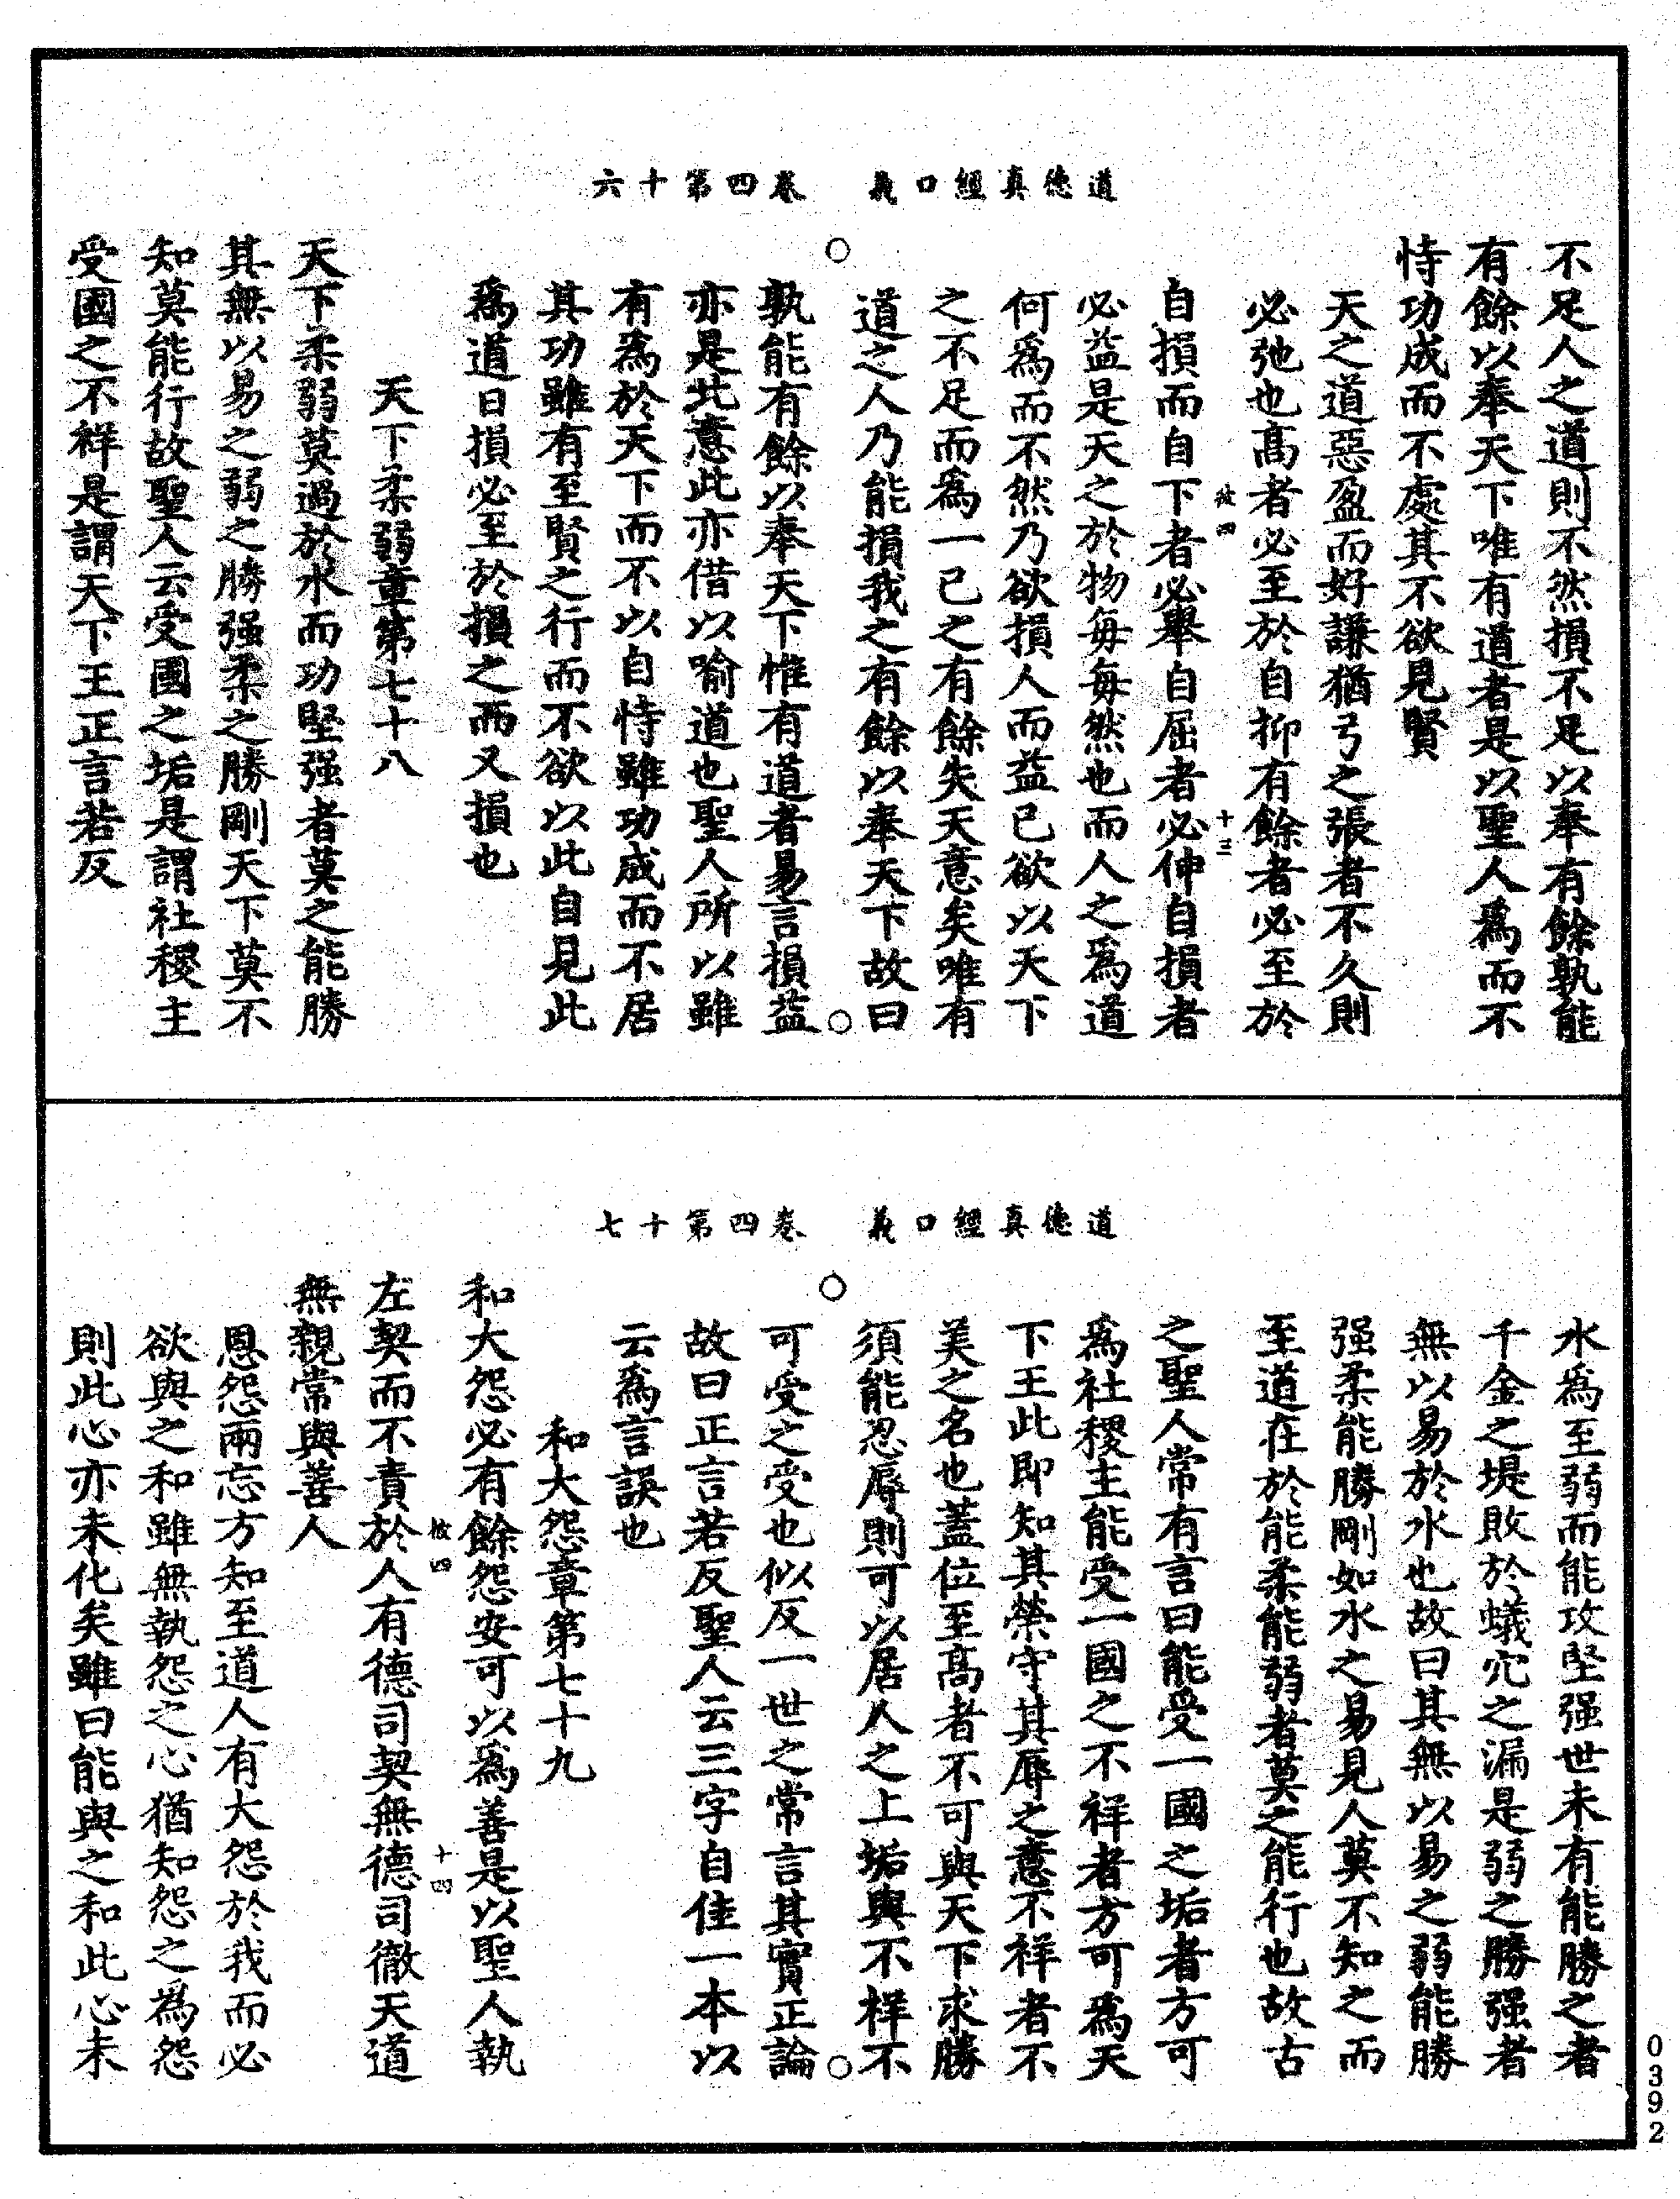 道德真經口義　卷四第十六
不足人之道則不然損不足以奉有餘孰能
有餘以奉天下唯有道者是以聖人爲而不
恃功成而不處其不欲見賢
天之道惡盈而好謙猶弓之張者不久則
必弛也高者必至於自抑有餘者必至於
四
十三
自損而自下者必舉自屈者必伸自損者
必益是天之於物每每然也而人之爲道
何爲而不然乃欲損人而益已欲以天下
之不足而爲一已之有餘失天意矣唯有
道之人乃能損我之有餘以奉天下故曰
孰能有餘以奉天下惟有道者易言損益
亦是此意此亦借以喻道也聖人所以雖
有爲於天下而不以自恃雖功成而不居
其功雖有至賢之行而不欲以此自見此
爲道日損必至於損之而又損也
天下柔弱章第七十八
天下柔弱莫過於水而功堅强者莫之能勝
其無以易之弱之勝强柔之勝剛天下莫不
知莫能行故聖人云受國之垢是謂社稷主
受國之不祥是謂天下王正言若反
道德真經口義　卷四第十七
水爲至弱而能攻堅强世未有能勝之者
千金之堤敗於蟻穴之漏是弱之勝强者
無以易於水也故曰其無以易之弱能勝
强柔能勝剛如水之易見人莫不知之而
至道在於能柔能弱者莫之能行也故古
之聖人常有言曰能受一國之垢者方可
爲社稷主能受一國之不祥者方可爲天
下王此即知其榮守其辱之意不祥者不
美之名也蓋位至高者不可與天下求勝
須能忍辱則可以居人之上垢與不祥不
可受之受也似反一世之常言其實正論
故曰正言若反聖人云三字自佳一本以
云爲言誤也
和大怨章第七十九
和大怨必有餘怨安可以爲善是以聖人執
四
十四
左契而不責於人有德司契無德司徹天道
無親常與善人
恩怨兩忘方知至道人有大怨於我而必
欲與之和雖無執怨之心猶知怨之為怨
則此心亦未化矣雖曰能與之和此心未
0392